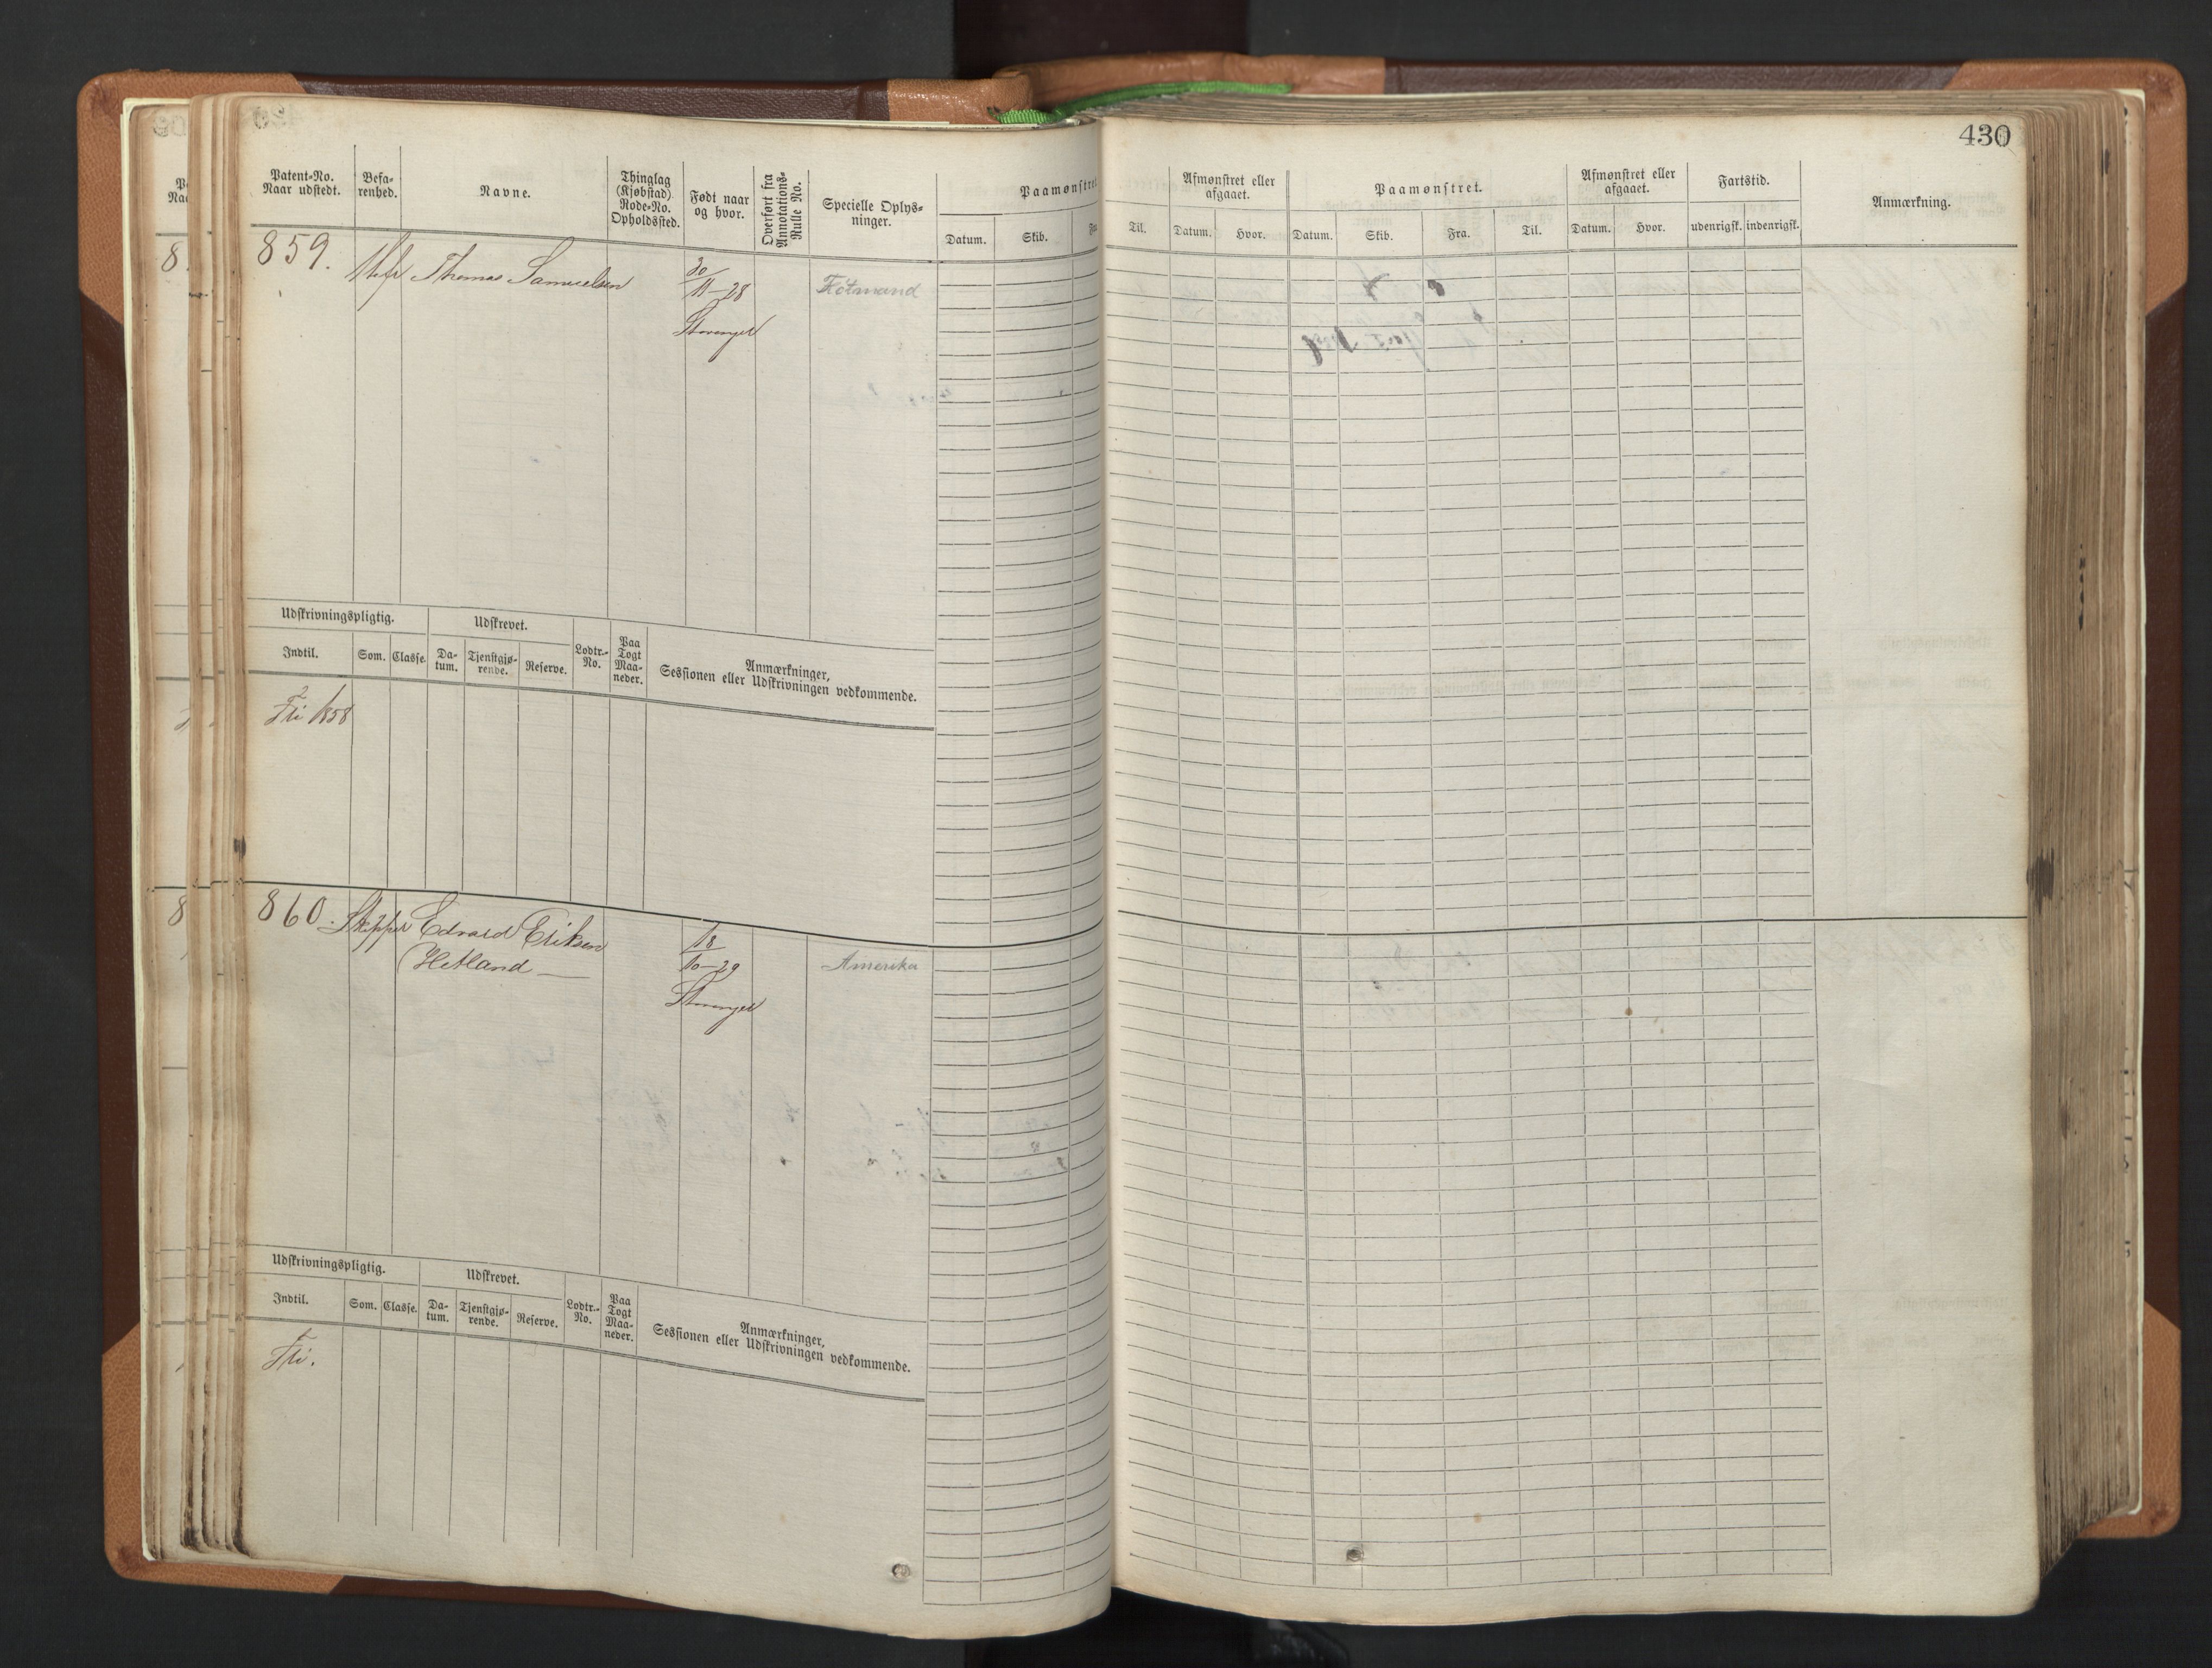 430
Patent-No.
Naar udstedt.
Befa-
renhed.
Navne.
Thinglag
(Kjøbstad)
Rode-No.
Opholdssted.
Født naar
og hvor.
Overført fra
Annotations-
Rulle No.
Specielle Oplys-
ninger.
Paamønstret
Datum.
Skib.
Fra
Til.
Afmønstret eller
afgaaet.
Datum.
Hvor.
Paamønstret.
Datum.
Skib.
Fra.
Til.
Afmønstret eller
afgaaet.
Datum.
Hvor.
Fartstid.
udenrigsk.
indenrigsk.
Anmærkning.
859.
Thomas Samuelsen
30
11-28
Stavanger
Flotmand
Udskrivningspligtig.
Udskrevet.
Indtil.
Som.
Classe.
Da-
tum.
Tjenstgjø-
rende.
Reserve.
Lodtr.-
No.
Paa
Togt
Maa-
neder.
Anmærkninger,
Sessionen eller Udskrivningen vedkommende.
Fri 1858
860.
Skipper
Edvard Eriksen
Hetland
18
10-29
Stavanger
Amerika
Udskrivningspligtig.
Udskrevet.
Indtil.
Som.
Classe.
Da-
tum.
Tjenstgjø-
rende.
Reserve.
Lodtr.-
No.
Paa
Togt
Maa-
neder.
Anmærkninger,
Sessionen eller Udskrivningen vedkommende.
Fri.